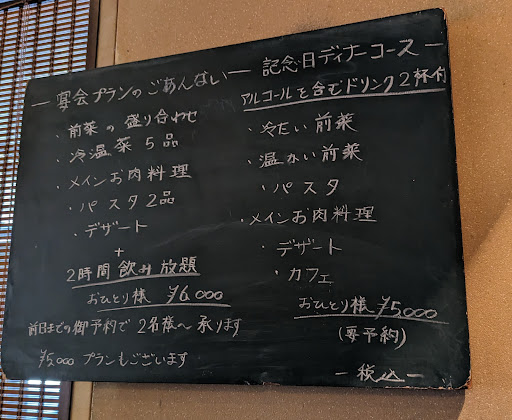 ― 宴会プランのごあんない ―
・前菜の盛り合わせ
・冷温菜 5品
・メインお肉料理
・パスタ2品
・デザート
+
2時間飲み放題
おひとり様 ¥6,000
前日までの御予約で 2名様〜承ります
¥5,000 プランもございます
記念日ディナーコース ―
アルコールを含むドリンク2杯付
・冷たい前菜
・温かい前菜
・パスタ
・メインお肉料理
・デザート
・カフェ
おひとり様 ¥5,000
(要予約)
― 税込 ―